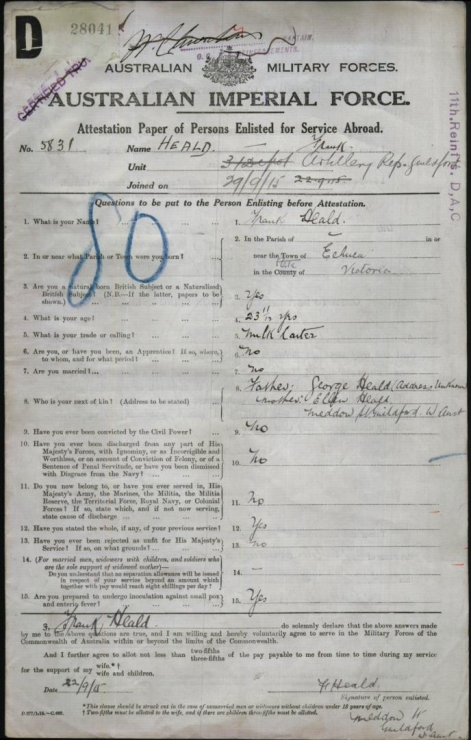 D
28041
CERTIFIED
AUSTRALIAN MILITARY FORCES.
AUSTRALIAN IMPERIAL FORCE.
11th. Reinf'ts. D,A,C
Attestation Paper of Persons Enlisted for Service Abroad.
No. 5831 Name HEALD. Frank
Unit Artillery Reps. Guildford
Joined on 29/9/15 22.9.15
Questions to be put to the Person Enlisting before Attestation.
80
1. What is your Name? 1. Frank Heald.
2. In or near what Parish or Town were you born? 2. In the Parish of in or
near the Town of Echuca
in the County of Victoria
State
3. Are you a natural born British Subject or a Naturalised
British Subject? (N.B.—If the latter, papers to be
shown.) 3. Yes
4. What is your age? 4. 23 yrs
5. What is your trade or calling? 5. Milk Carter
6. Are you, or have you been, an Apprentice? If so, where,
to whom, and for what period? 6. No
7. Are you married? 7. No
8. Who is your next of kin? (Address to be stated) 8. Father; George Heald (Address Unknown
mother: Ellen Heald
Meddow St Guildford. W Aust
9. Have you ever been convicted by the Civil Power? 9. No
10. Have you ever been discharged from any part of His
Majesty's Forces, with Ignominy, or as Incorrigible and
Worthless, or on account of Conviction of Felony, or of a
Sentence of Penal Servitude, or have you been dismissed
with Disgrace from the Navy? 10. No
11. Do you now belong to, or have you ever served in, His
Majesty's Army, the Marines, the Militia, the Militia
Reserve, the Territorial Force, Royal Navy, or Colonial
Forces? If so, state which, and if not now serving,
state cause of discharge 11. No
12. Have you stated the whole, if any, of your previous service? 12. Yes
13. Have you ever been rejected as unfit for His Majesty's
Service? If so, on what grounds? 13. No
14. (For married men, widowers with children, and soldiers who
are the sole support of widowed mother)—
Do you understand that no separation allowance will be issued
in respect of your service beyond an amount which
together with pay would reach eight shillings per day? 14. —
15. Are you prepared to undergo inoculation against small pox
and enteric fever? 15. Yes
Frank Heald do solemnly declare that the above answers made
by me to the above questions are true, and I am willing and hereby voluntarily agree to serve in the Military Forces of the
Commonwealth of Australia within or beyond the limits of the Commonwealth.
And I further agree to allot not less than two-fifths three-fifths of the pay payable to me from time to time during my service
for the support of my wife.*† wife and children.
Date 22/9/15 F Heald.
Signature of person enlisted.
*This clause should be struck out in the case of unmarried men or widowers without children under 18 years of age.
† Two-fifths must be allotted to the wife, and if there are children three-fifths must be allotted.
Meddow St
Guildford